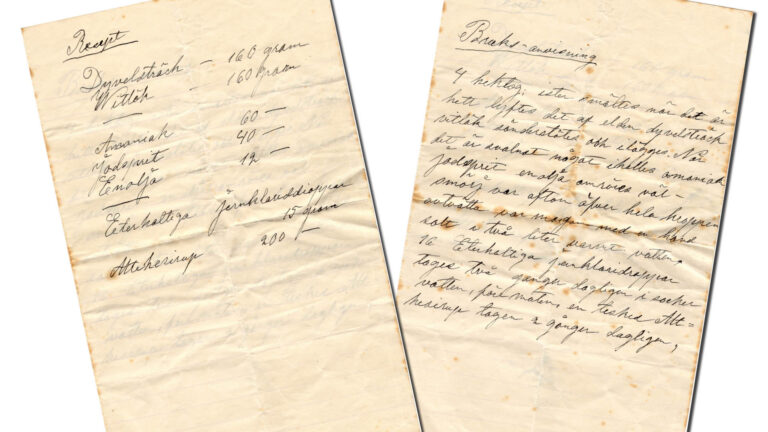 Recept
Dyvelsträck — 160 gram
Vitlök 160 gram
Amoniak 60 —
Jodsprit 40 —
Enoljä 12 —
Eterhaltiga järnkloriddroppar
15 gram
Altheesirup 200 —
Bruks-anvisning
4 hekto, ister smältes när det är
hett lyftes det af elden, dyvelsträck
vitlök sönderstötes och ilägges. När
det är svalnat något ihelles amoniak
jodsprit enoljä omröres väl
smörj var afton öfver hela kroppen
avtvätta var morgon med en hand
salt i två liter varmt vatten,
16 Eterhaltiga järnkloriddroppar
tages två gånger dagligen i socker
vatten, före maten, en tesked Alt-
heesirup tagen 2 gånger dagligen,